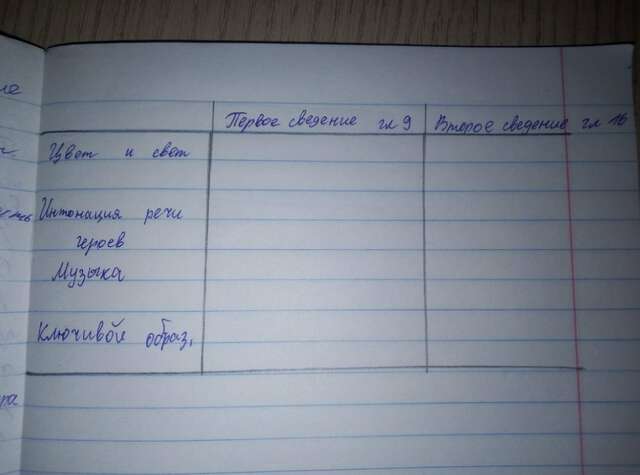 Первое сведение гл 9
Второе сведение гл 16
Цвет и свет
Интонация речи
героев
Музыка
Ключивой образ,